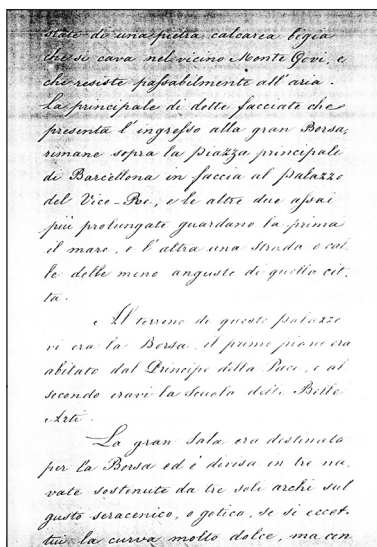 state di una pietra calcarea bigia
che si cava nel vicino Monte Govi, e
che resiste passabilmente all'aria.
La principale di dette facciate che
presenta l'ingresso alla gran Borsa,
rimane sopra la Piazza principale
di Barcellona in faccia al Palazzo
del Vice-Re, e le altre due assai
più prolungate guardano la prima
il mare, e l'altra una strada o cal-
le delle meno anguste di quella cit-
tà.
Al terreno di questo palazzo
vi era la Borsa, il primo piano era
abitato dal Principe della Pace, e al
secondo eravi la Scuola delle Belle
Arti.
La gran Sala era destinata
per la Borsa ed è divisa in tre na-
vate sostenute da tre soli archi sul
gusto seracenico, o gotico, se si eccet-
tui la curva molto dolce, ma con